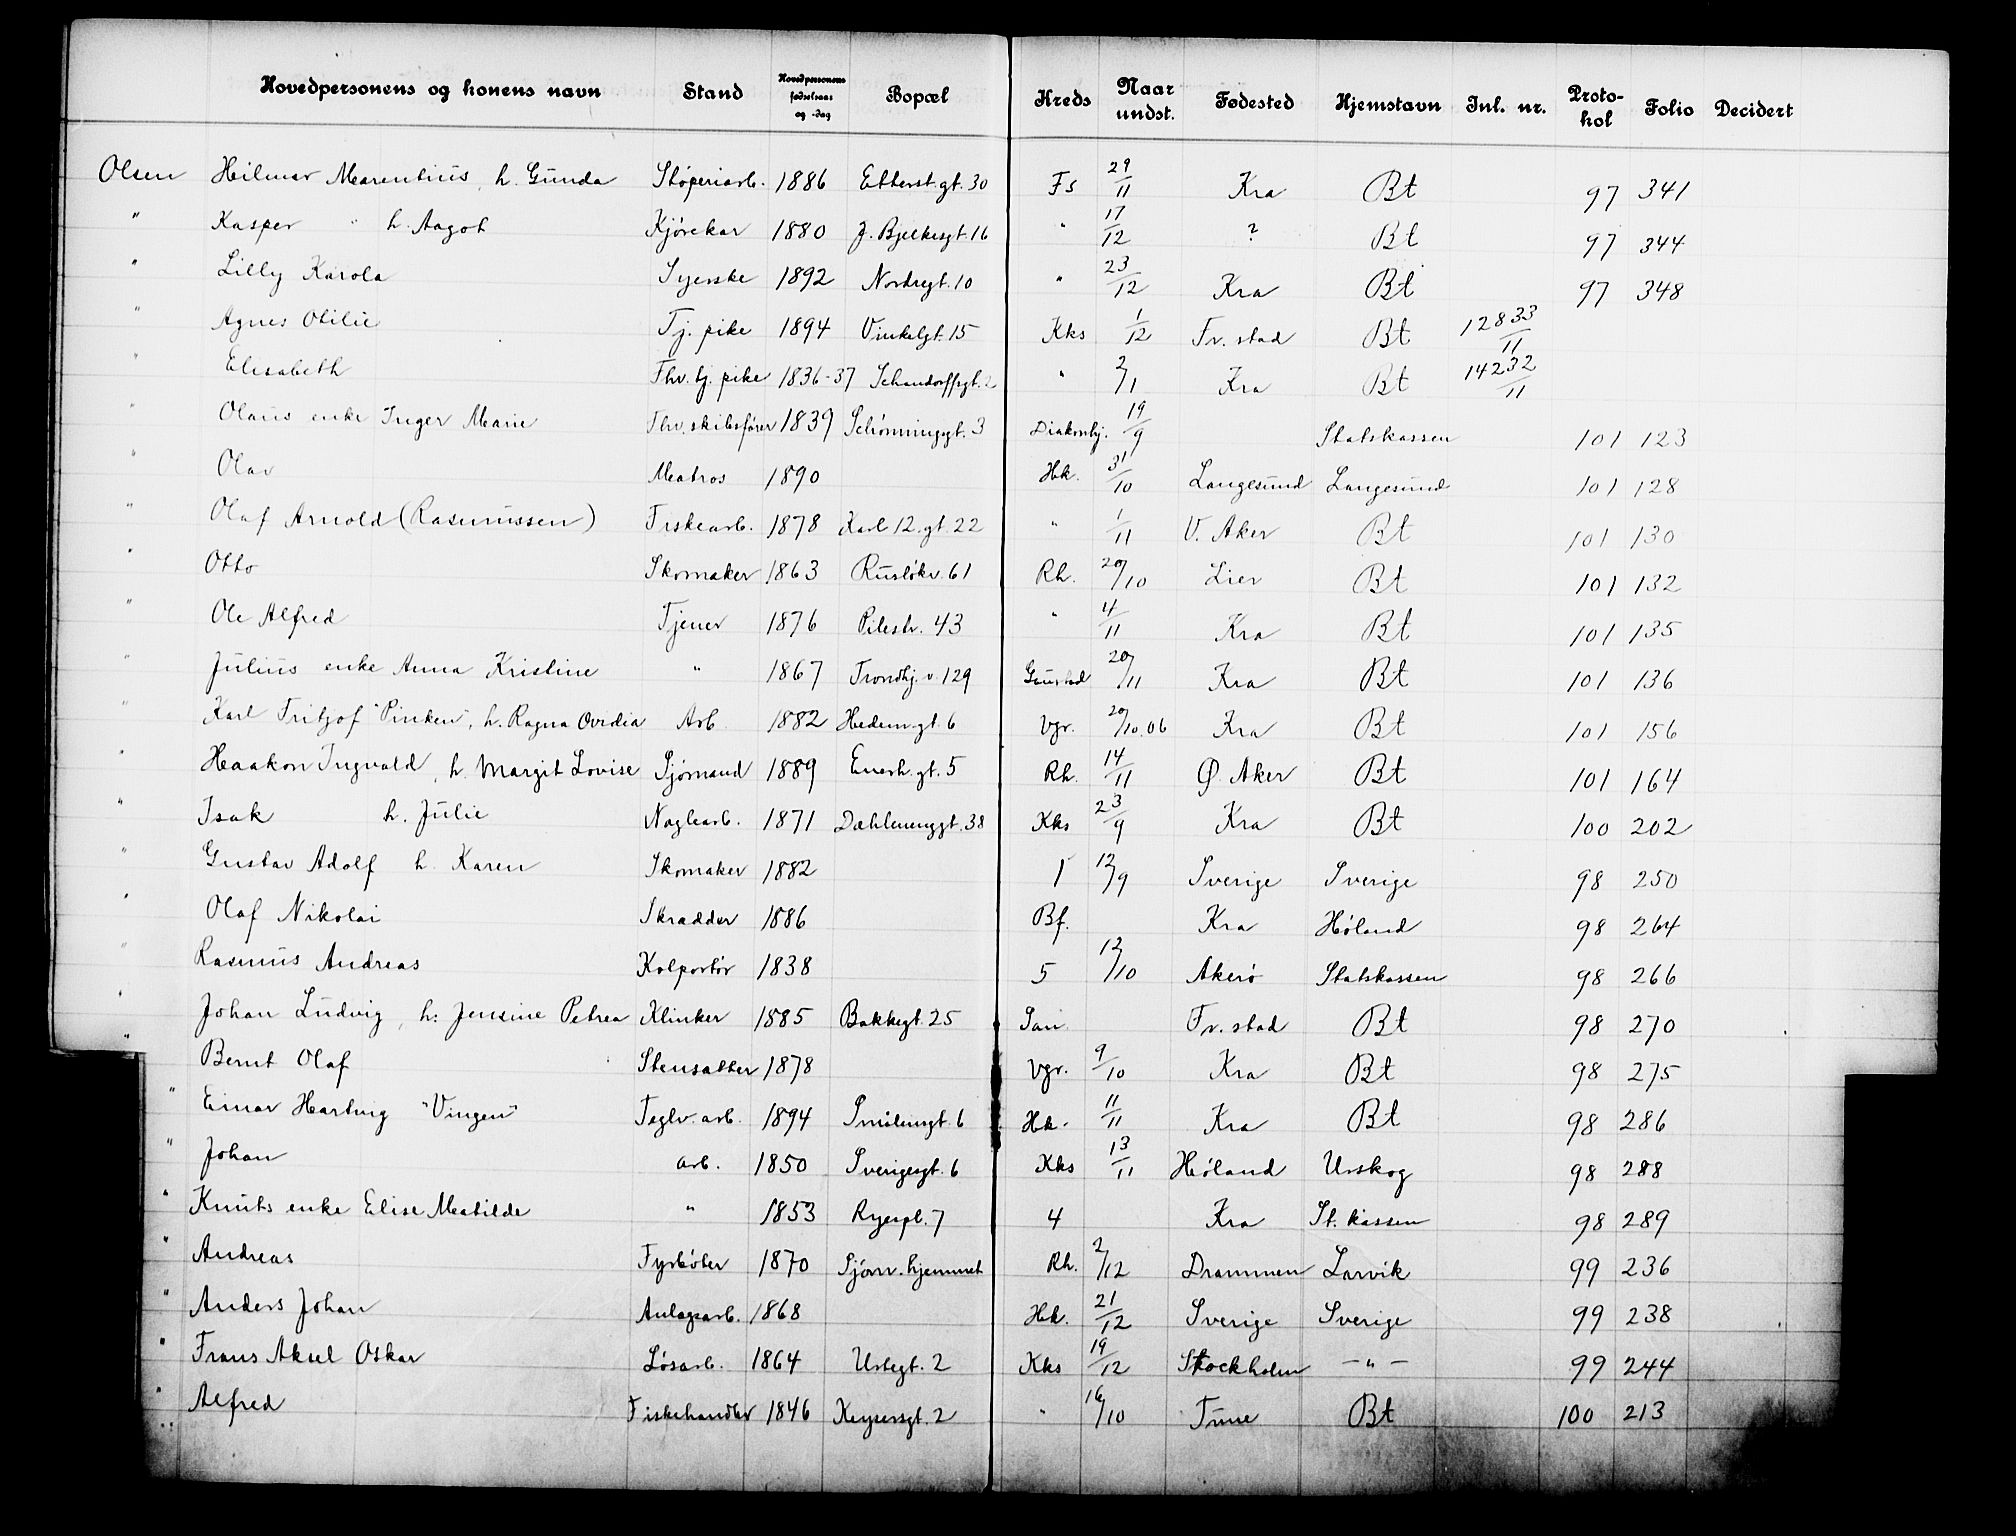 Hovedpersonens og konens navn Stand Hovedpersonens fødselsaar og -dag Bopæl Kreds Naar undst. Fødested Hjemstavn Inl. nr. Protokol Folio Decidert
Olsen Hilmar Marentius, h. Gunda Støperiarb. 1886 Etterst.gt. 30 Fs 29/11 Kra Bt 97 341
" Kasper " h. Aagot Kjørekar 1880 J. Bjelkesgt. 16 " 17/12 ? Bt 97 344
" Lilly Karola Syerske 1892 Nordregt. 10 " 23/12 Kra Bt 97 348
" Agnes Otilie Tj. pike 1894 Vinkelgt. 15 Kks 1/12 Fr. stad Bt 12833/11
" Elisabeth Fhv. tj. pike 1836-37 Schandorffsgt. 2 " 2/1 Kra Bt 14232/11
" Olaus enke Inger Marie Fhv. skibsfører 1839 Schønningsgt. 3 Diakonhj. 19/9 Statskassen 101 123
" Olav Matros 1890 Hk. 31/10 Langesund Langesund 101 128
" Olaf Arnold (Rasmussen) Fiskearb. 1878 Karl 12. gt. 22 " 1/11 V. Aker Bt 101 130
" Otto Skomaker 1863 Rusløkv. 61 Rh. 20/10 Lier Bt 101 132
" Ole Alfred Tjener 1876 Pilestr. 43 " 4/11 Kra Bt 101 135
" Julius enke Anna Kristine " 1867 Trondhj. v. 129 Gaustad 20/11 Kra Bt 101 136
" Karl Fritjof "Pinken", h. Ragna Ovidia Arb. 1882 Hedem.gt. 6 Vgr. 20/10.06 Kra Bt 101 156
" Haakon Ingvald, h. Margit Lovise Sjømand 1889 Enerh.gt. 5 Rh. 14/11 Ø. Aker Bt 101 164
" Isak h. Julie Naglearb. 1871 Dæhlenenggt. 38 Kks 23/9 Kra Bt 100 202
" Gustav Adolf h. Karen Skomaker 1882 1 12/9 Sverige Sverige 98 250
" Olaf Nikolai Skrædder 1886 Bf. Kra Høland 98 264
" Rasmus Andreas Kolportør 1838 5 12/10 Akerø Statskassen 98 266
" Johan Ludvig, h. Jensine Petrea Klinker 1885 Bakkegt. 25 San Fr. stad Bt 98 270
" Bernt Olaf Stensætter 1878 Vgr. 9/10 Kra Bt 98 275
" Einar Hartvig "Vingen" Teglv. arb. 1894 Smålensgt. 6 Hk. 11/11 Kra Bt 98 286
" Johan arb. 1850 Sverigesgt. 6 Kks 13/11 Høland Urskog 98 288
" Knuts enke Elise Matilde " 1853 Ryenpl. 7 4 Kra St. kassen 98 289
" Andreas Fyrbøter 1870 Sjøm. hjemmet Rh. 2/12 Drammen Larvik 99 236
" Anders Johan Anlægsarb. 1868 Hk. 21/12 Sverige Sverige 99 238
" Frans Aksel Oskar Løsarb. 1864 Urtegt. 2 Kks 19/12 Stockholm — " — 99 244
" Alfred Fiskehandler 1846 Keysersgt. 2 " 16/10 Tune Bt 100 213